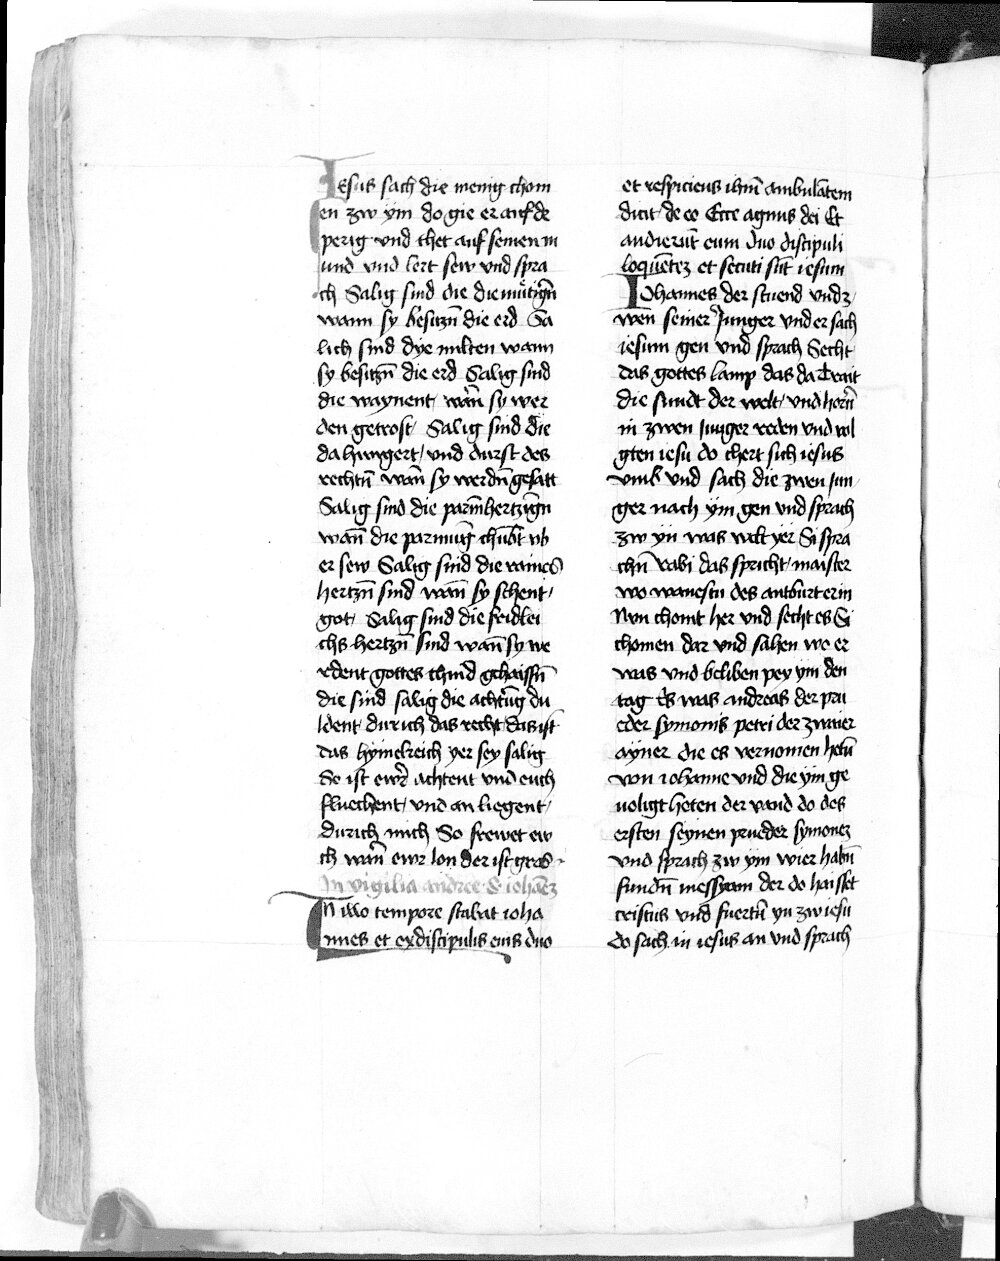 Jesus sach die menig chom
en zw ym do gie er auf de
perig vnd thet auf seinen m
und vnd lert sew vnd spra
ch Salig sind die diemütign̄
wann sy besiczn̄ die erd Sa
lich sind dye milten wann
sy besiczn̄ die erd Salig sind
die waynent wān sy wer
den getrost Salig sind die
da hungert vnd durst des
rechtn̄ wān sy werdn̄ gesatt
Salig sind die parm̄hertzign̄
wan̄ die parmūg chūbt vb
er sew Salig sind die raines
hertzn̄ sind wan̄ sy sehent
got Salig sind die fridlei
chs hertzn̄ sind wan̄ sy we
rdent gottes chind gehaissn̄
die sind salig die achtūg du
ldent durich das recht das ist
das hymelreich yer sey salig
So ist ewr̄ achtent vnd euch
fluechent vnd an liegent
durich mich So frewet ew
ch wān ewr lon der ist gros
In vigilia andree S iohānēz
IN illo tempore stabat ioha
nnes et ex discipulis eius duo
et respiciens ihm̄ ambulātem
dicit de eo Ecce agnus dei Et
audierūt eum duo discipuli
loquētez et secuti sūt iesum
Johannes der stuend vnd z
wen seiner Junger vnd er sach
iesum gen vnd sprach Secht
das gottes lamp das da trait
die sundt der welt vnd horn̄
in zwen Junger reden vnd vol
gten iesu do chert sich iesus
vmb vnd sach die zwen Jun
ger nach ym gen vnd sprach
zw yn was welt yer Si spra
chn̄ rabi das spricht maister
wo wanestu des antburt er in
Nun chomt her vnd secht es Si
chomen dar vnd sahen wo er
was vnd beliben pey ym den
tag Es was andreas der pru
eder symonis petri der zwaier
ayner die es vernomen hetn̄
von iohanne vnd die ym ge
uoligt heten der vand do des
ersten seynen prueder symonez
vnd sprach zw ym wier habn̄
fundn̄ messyam der do haisset
cristus vnd fuertn̄ yn zw iesu
do sach in iesus an vnd sprach